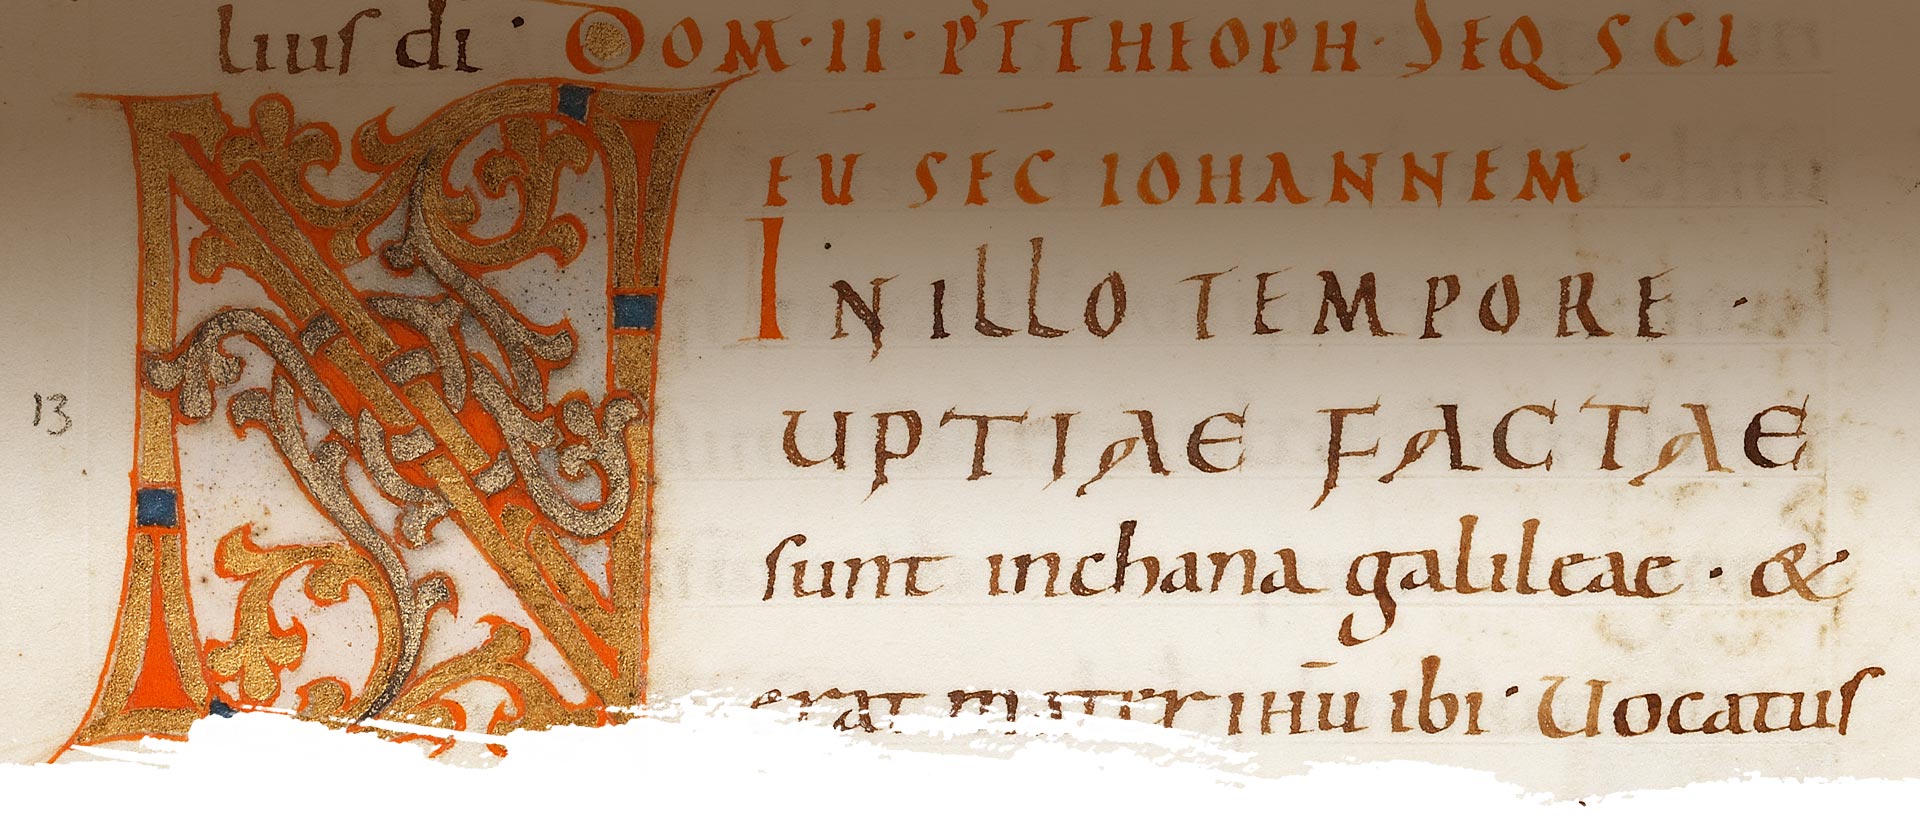 lius di · DOM · II · PT THEOPH · SEQ SCI
EU SEC IOHANNEM ·
IN ILLO TEMPORE ·
13
NUPTIAE FACTAE
sunt inchana galileae · &
erat mater ihu ibi · Uocatus